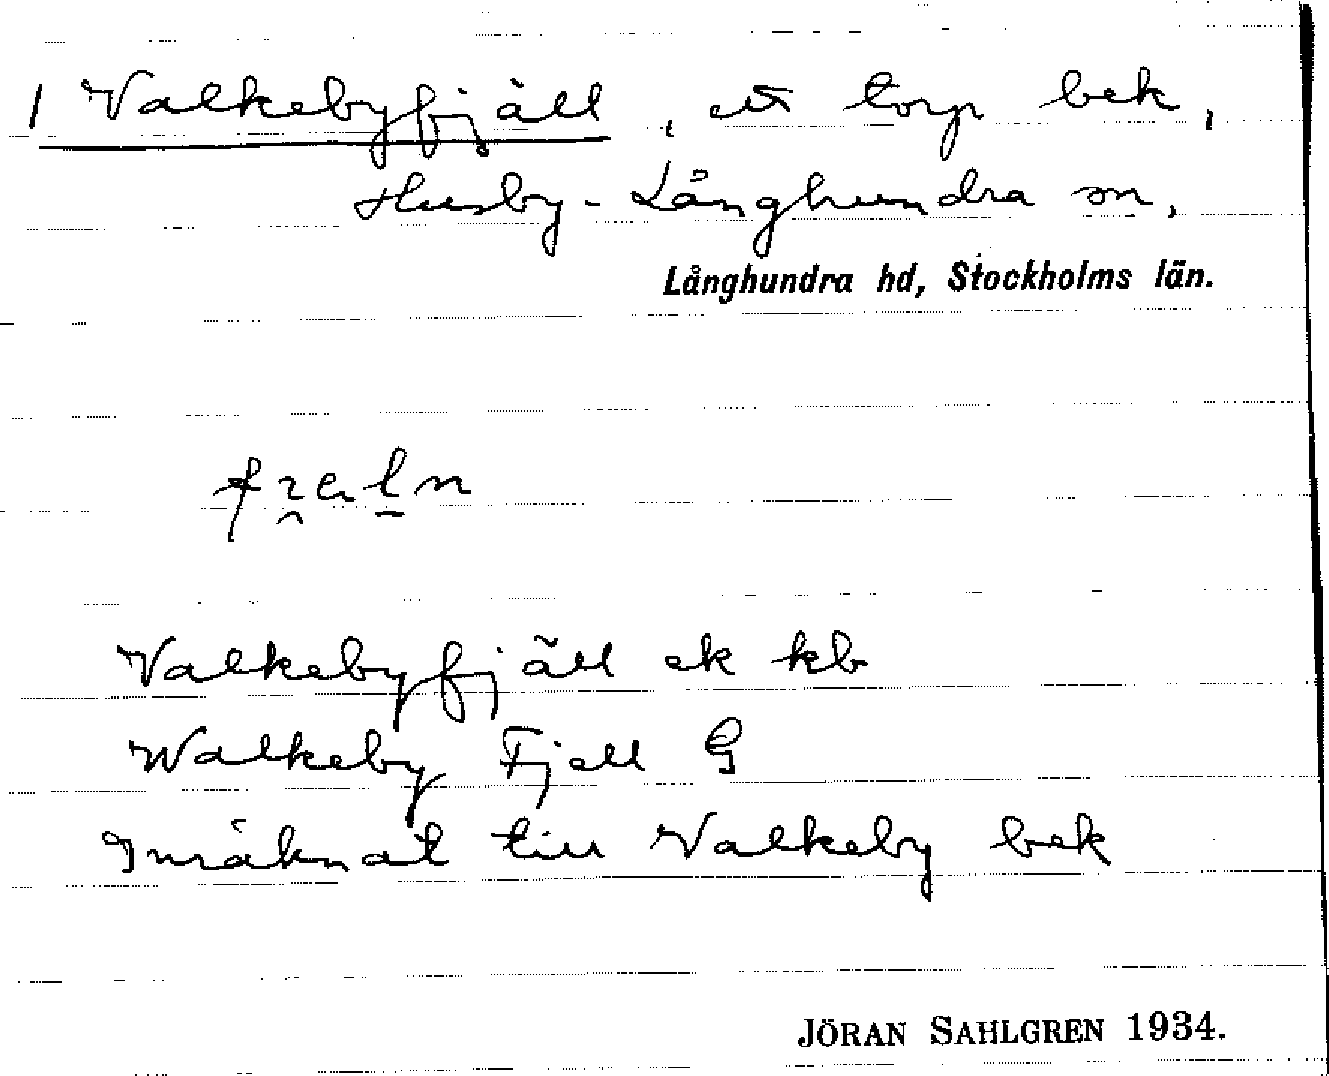 1 Valkebyfjäll, ett torp bek,
Husby-Långhundra sn,
Långhundra hd, Stockholms län.
Valkebyfjäll ek kb
Walkeby Fjell G
Inräknat till Valkeby bek
JÖRAN SAHLGREN 1934.